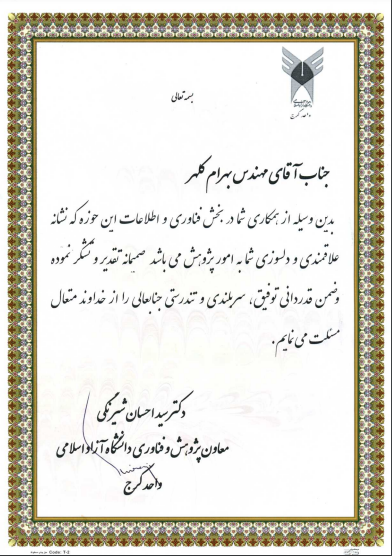 واحد کرج
بسمه تعالی
جناب آقای مهندس بهرام کلهر
بدین وسیله از همکاری شما در بخش فناوری و اطلاعات این حوزه که نشانه
علاقمندی و دلسوزی شما به امور پژوهش می باشد صمیمانه تقدیر و تشکر نموده
وضمن قدردانی توفیق، سربلندی و تندرستی جنابعالی را از خداوند متعال
مسئلت می نمایم.
دکتر سید احسان شیرنگی
معاون پژوهش و فناوری دانشگاه آزاد اسلامی
واحد کرج
Code: T-2